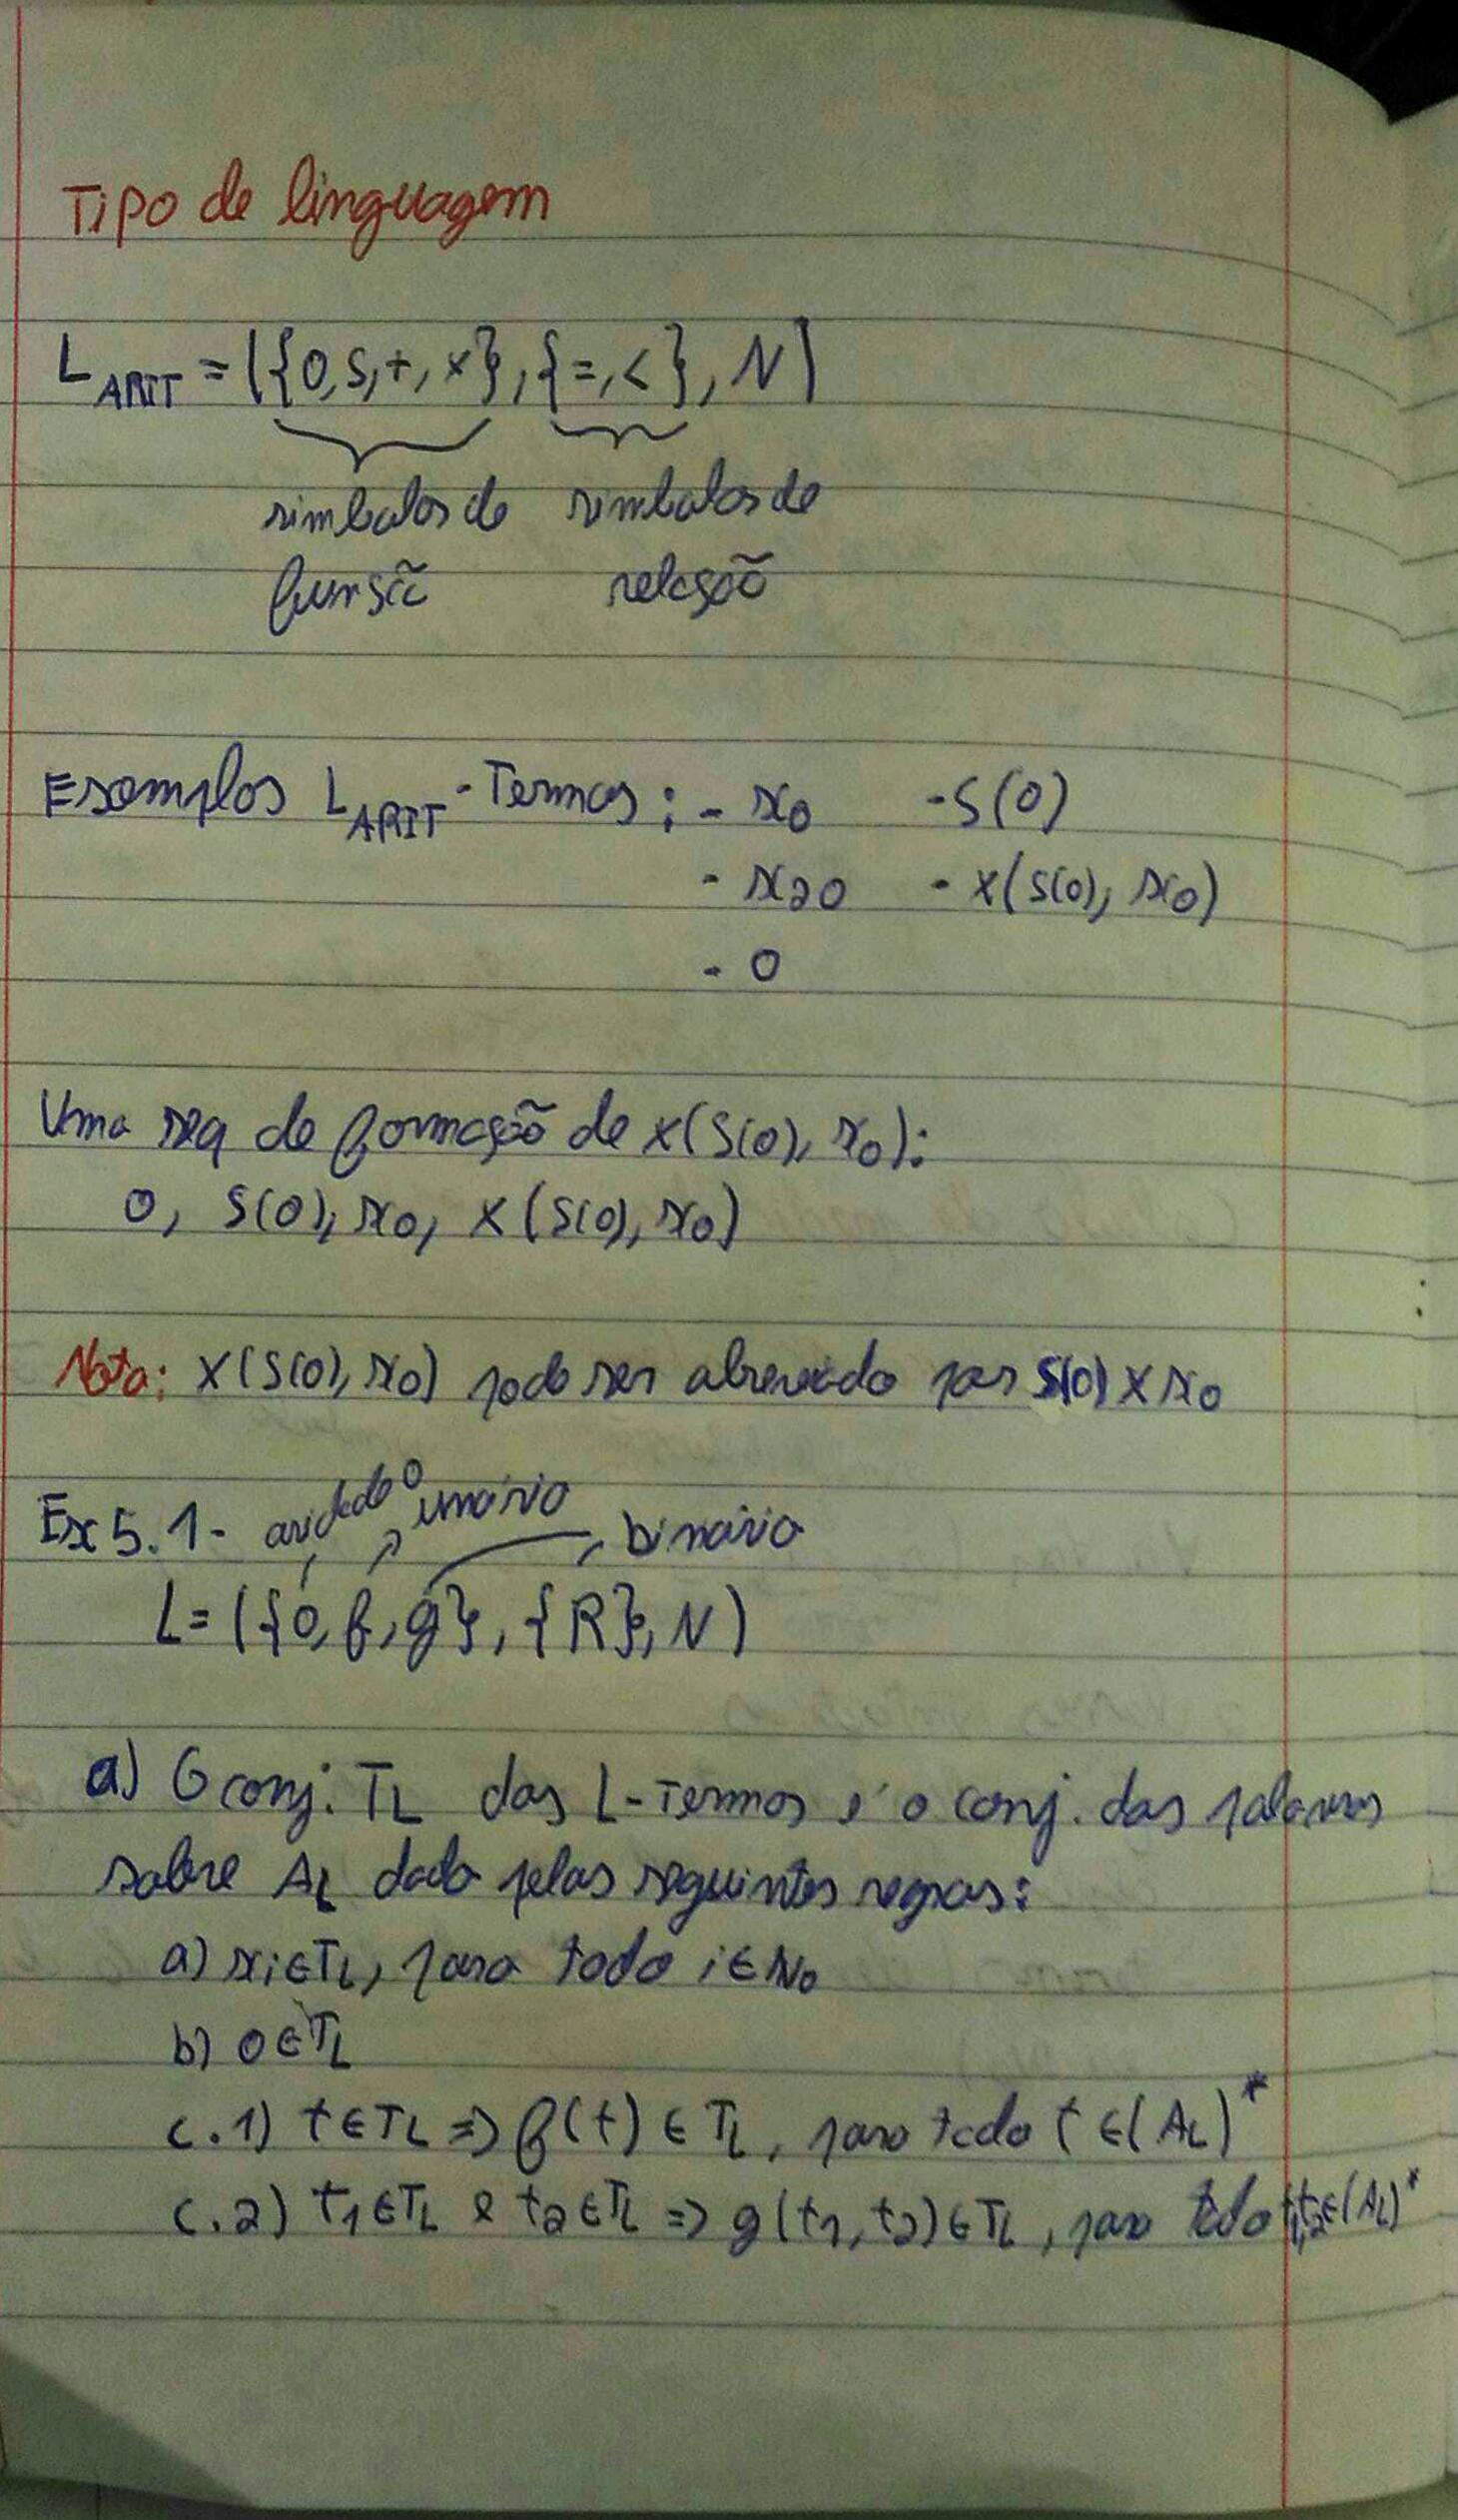 Tipo de linguagem
L_ARIT = ({0, s, +, ×}, {=, <}, N)
símbolos de símbolos de
função relação
Exemplos L_ARIT-Termos: - x0 - s(0)
- x20 - ×(s(0), x0)
- 0
Uma seq de formação de ×(s(0), x0):
0, s(0), x0, ×(s(0), x0)
Nota: ×(s(0), x0) pode ser abreviado por s(0) × x0
Ex 5.1- aridade 0 unário binário
L = ({0, f, g}, {R}, N)
a) O conj. TL das L-Termos é o conj. das palavras
sobre AL dado pelas seguintes regras:
a) xi ∈ TL, para todo i ∈ N0
b) 0 ∈ TL
c.1) t ∈ TL => f(t) ∈ TL, para todo t ∈ (AL)*
c.2) t1 ∈ TL e t2 ∈ TL => g(t1, t2) ∈ TL, para todo t1, t2 ∈ (AL)*